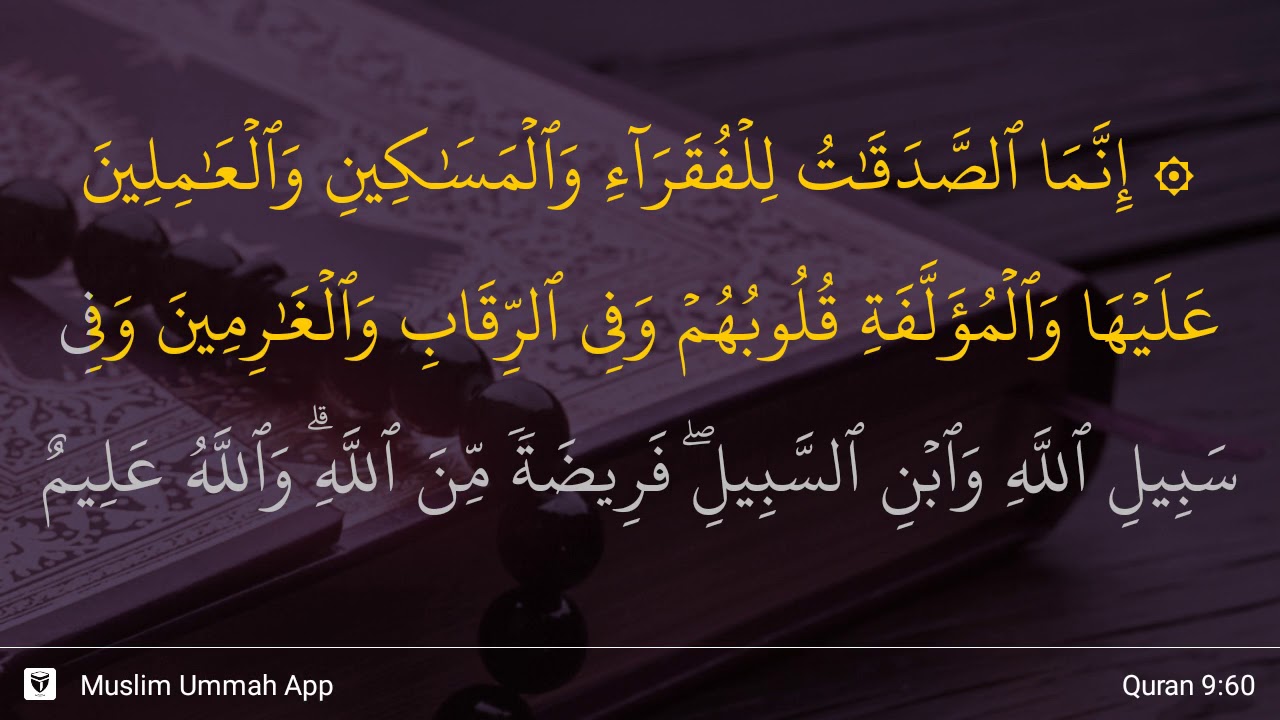 ۞ إِنَّمَا ٱلصَّدَقَٰتُ لِلْفُقَرَآءِ وَٱلْمَسَٰكِينِ وَٱلْعَٰمِلِينَ
عَلَيْهَا وَٱلْمُؤَلَّفَةِ قُلُوبُهُمْ وَفِى ٱلرِّقَابِ وَٱلْغَٰرِمِينَ وَفِى
سَبِيلِ ٱللَّهِ وَٱبْنِ ٱلسَّبِيلِ ۖ فَرِيضَةً مِّنَ ٱللَّهِ ۗ وَٱللَّهُ عَلِيمٌ
Muslim Ummah App
Quran 9:60